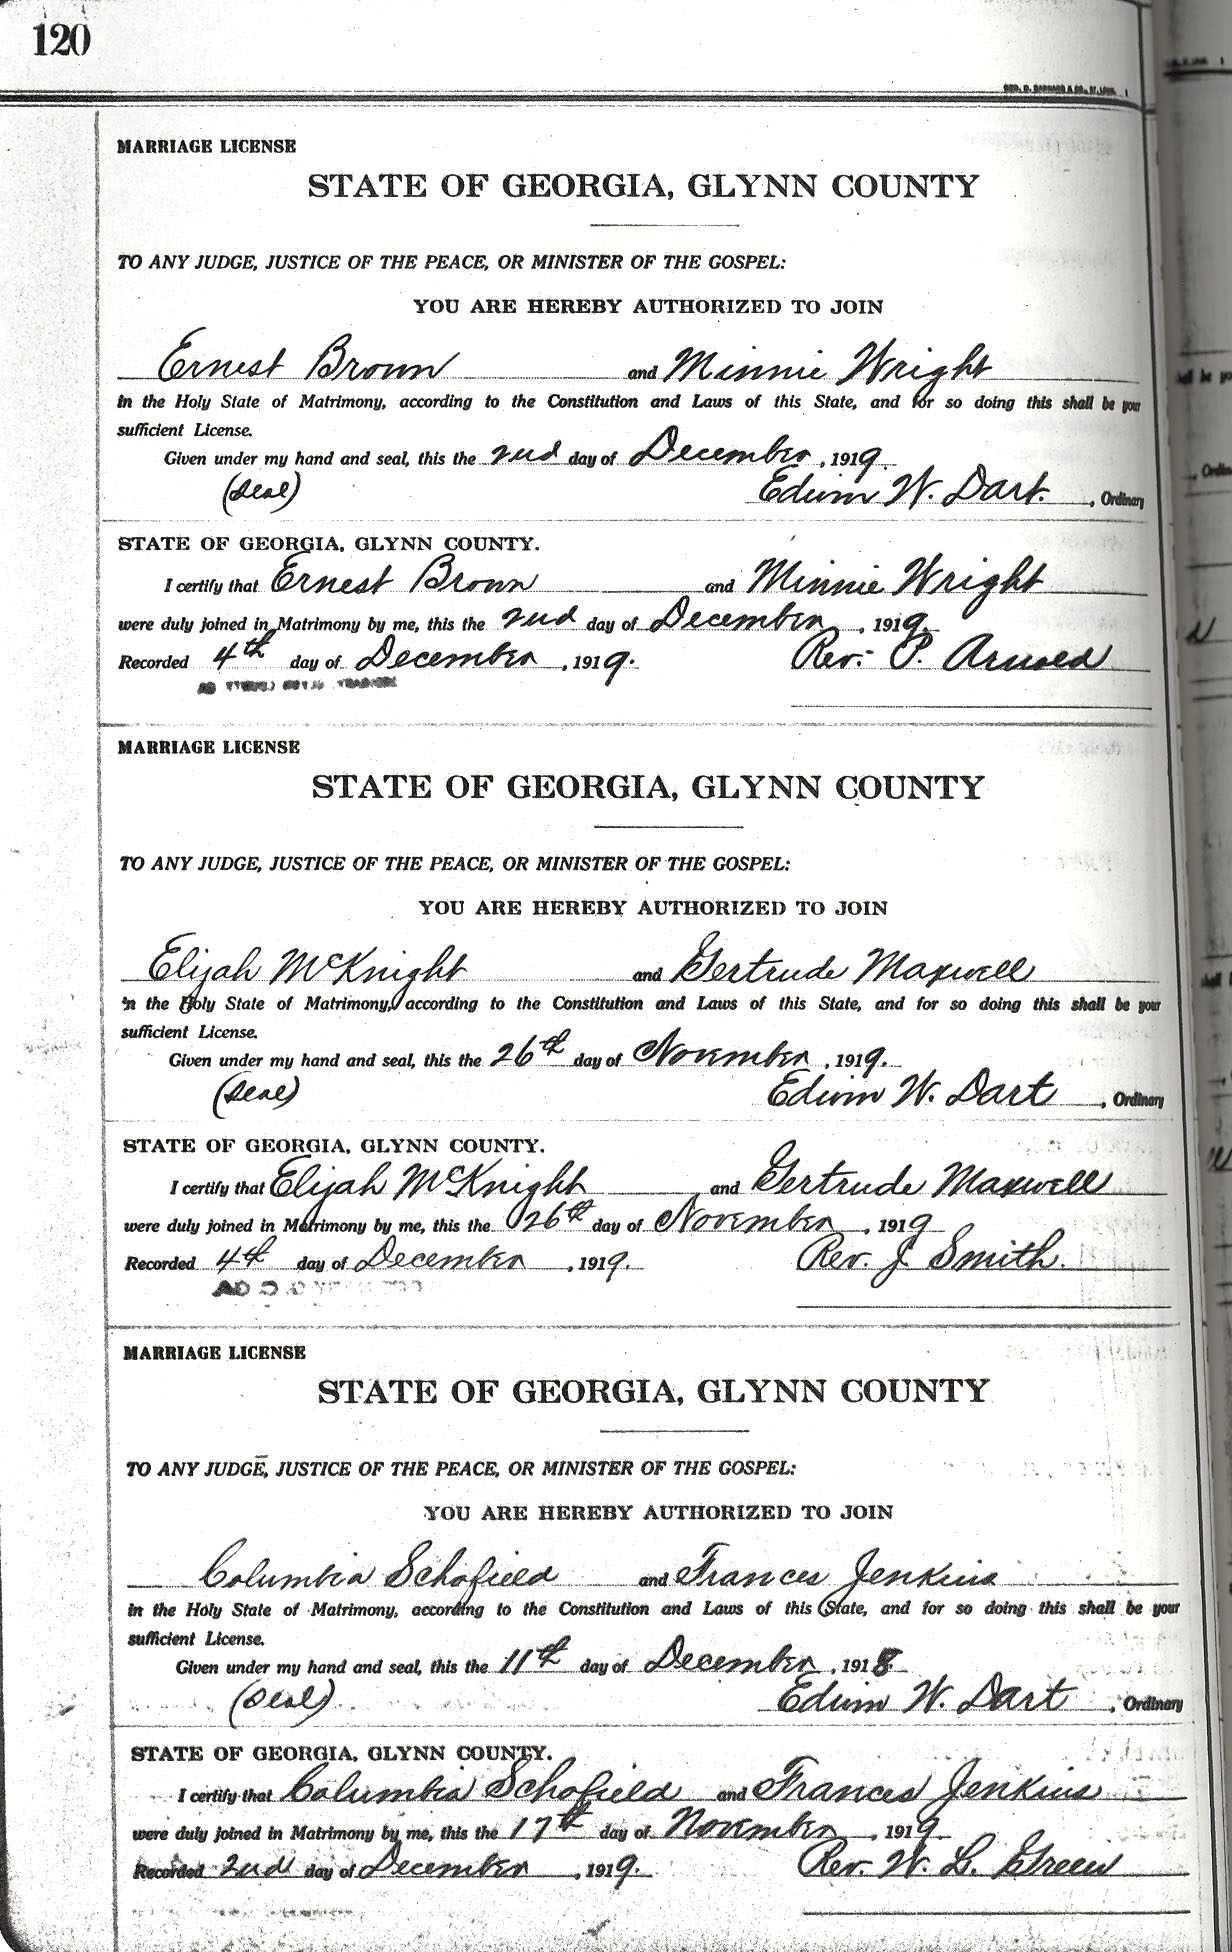 120
GEO. D. BARNARD & CO., ST. LOUIS.
MARRIAGE LICENSE
STATE OF GEORGIA, GLYNN COUNTY
TO ANY JUDGE, JUSTICE OF THE PEACE, OR MINISTER OF THE GOSPEL:
YOU ARE HEREBY AUTHORIZED TO JOIN
Ernest Brown and Minnie Wright
in the Holy State of Matrimony, according to the Constitution and Laws of this State, and for so doing this shall be your
sufficient License.
Given under my hand and seal, this the 2nd day of December, 1919.
(Seal) Edwin W. Dart., Ordinary
STATE OF GEORGIA, GLYNN COUNTY.
I certify that Ernest Brown and Minnie Wright
were duly joined in Matrimony by me, this the 2nd day of December, 1919.
Recorded 4th day of December, 1919. Rev. P. Arnold
MARRIAGE LICENSE
STATE OF GEORGIA, GLYNN COUNTY
TO ANY JUDGE, JUSTICE OF THE PEACE, OR MINISTER OF THE GOSPEL:
YOU ARE HEREBY AUTHORIZED TO JOIN
Elijah McKnight and Gertrude Maxwell
in the Holy State of Matrimony, according to the Constitution and Laws of this State, and for so doing this shall be your
sufficient License.
Given under my hand and seal, this the 26th day of November, 1919.
(Seal) Edwin W. Dart, Ordinary
STATE OF GEORGIA, GLYNN COUNTY.
I certify that Elijah McKnight and Gertrude Maxwell
were duly joined in Matrimony by me, this the 26th day of November, 1919
Recorded 4th day of December, 1919. Rev. J. Smith.
MARRIAGE LICENSE
STATE OF GEORGIA, GLYNN COUNTY
TO ANY JUDGE, JUSTICE OF THE PEACE, OR MINISTER OF THE GOSPEL:
YOU ARE HEREBY AUTHORIZED TO JOIN
Columbia Schofield and Frances Jenkins
in the Holy State of Matrimony, according to the Constitution and Laws of this State, and for so doing this shall be your
sufficient License.
Given under my hand and seal, this the 11th day of December, 1918.
(Seal) Edwin W. Dart, Ordinary
STATE OF GEORGIA, GLYNN COUNTY.
I certify that Columbia Schofield and Frances Jenkins
were duly joined in Matrimony by me, this the 17th day of November, 1919
Recorded 2nd day of December, 1919. Rev. W. L. Green